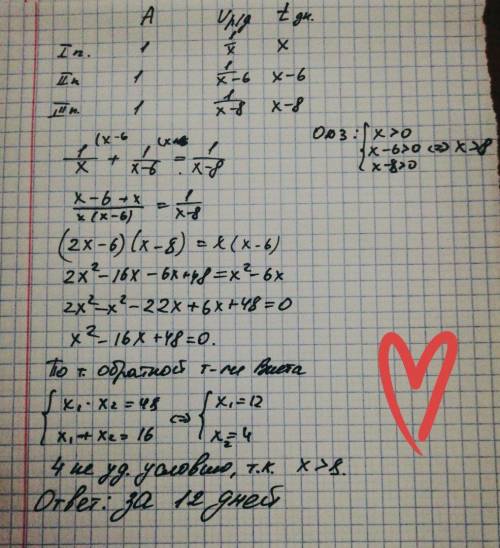 A υр/д t дн.
I п. 1 1/x x
II п 1 1/x-6 x-6
III п. 1 1/x-8 x-8
1/x + 1/x-6 = 1/x-8
ОДЗ: { x>0
x-6>0 ⇔ x>8
x-8>0
x-6+x / x(x-6) = 1/x-8
(2x-6)(x-8) = x(x-6)
2x²-16x-6x+48=x²-6x
2x²-x²-22x+6x+48=0
x²-16x+48=0.
По т. обратной т-ме Виета
{ x₁·x₂=48 ⇔ { x₁=12
x₁+x₂=16 x₂=4
4 не уд. условию, т.к. x>8.
Ответ: за 12 дней